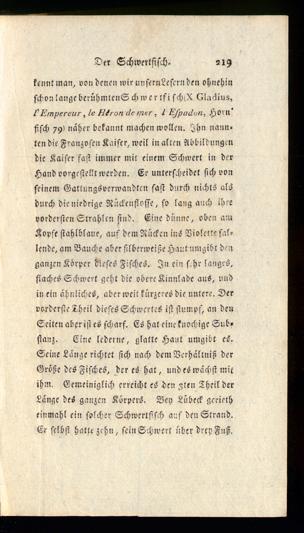 Der Schwertfisch. 219
kennt man, von denen wir unsern Lesern den ohnehin
schon lange berühmten Schwertfisch (X Gladius,
l'Empereur, le Héron de mer, l Espadon, Horn
fisch 79) näher bekannt machen wollen. Ihn nann-
ten die Franzosen Kaiser, weil in alten Abbildungen
die Kaiser fast immer mit einem Schwert in der
Hand vorgestellt werden. Er unterscheidet sich von
seinem Gattungsverwandten fast durch nichts als
durch die niedrige Rückenflosse, so lang auch ihre
vordersten Strahlen sind. Eine dünne, oben am
Kopfe stahlblaue, auf dem Rücken ins Violette fal-
lende, am Bauche aber silberweiße Haut umgibt den
ganzen Körper dieses Fisches. In ein sehr langes,
flaches Schwert geht die obere Kinnlade aus, und
in ein ähnliches, aber weit kürzeres die untere. Der
vorderste Theil dieses Schwertes ist stumpf, an den
Seiten aber ist es scharf. Es hat eine knochige Sub-
stanz. Eine lederne, glatte Haut umgibt es.
Seine Länge richtet sich nach dem Verhältniß der
Größe des Fisches, der es hat, und es wächst mit
ihm. Gemeiniglich erreicht es den 3ten Theil der
Länge des ganzen Körpers. Bey Lübeck gerieth
einmahl ein solcher Schwertfisch auf den Strand.
Er selbst hatte zehn, sein Schwert über drey Fuß.